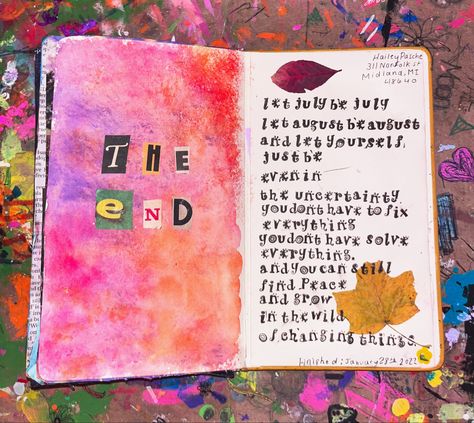 THE
eND
Hailey Pasche
311 Norfolk St
Midland, MI
48640
let july be july
let august be august
and let yourself,
just be
even in
the uncertainty.
you dont have to fix
everything
you dont have solve
everything.
and you can still
find Peace
and grow
in the wild
of changing things.
finished: January 28th 2022